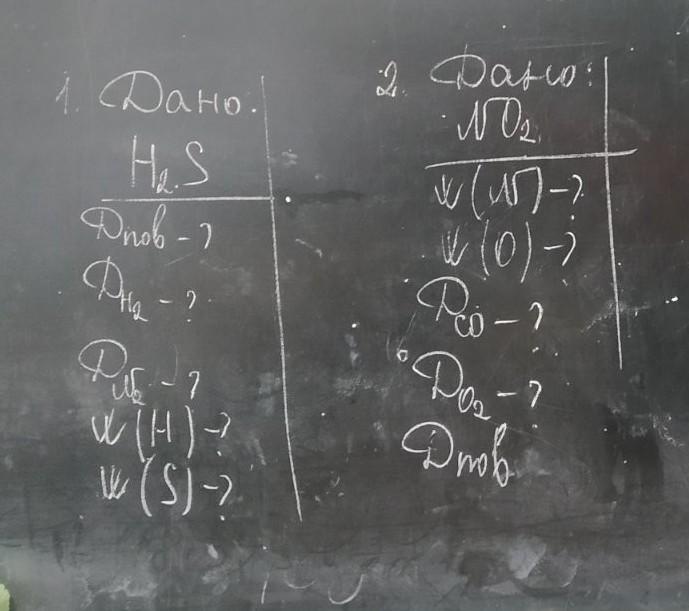 1. Дано:
H₂S
Dпов - ?
D_H₂ - ?
D_N₂ - ?
W(H) - ?
W(S) - ?
2. Дано:
NO₂
W(N) - ?
W(O) - ?
D_CO - ?
D_O₂ - ?
Dпов